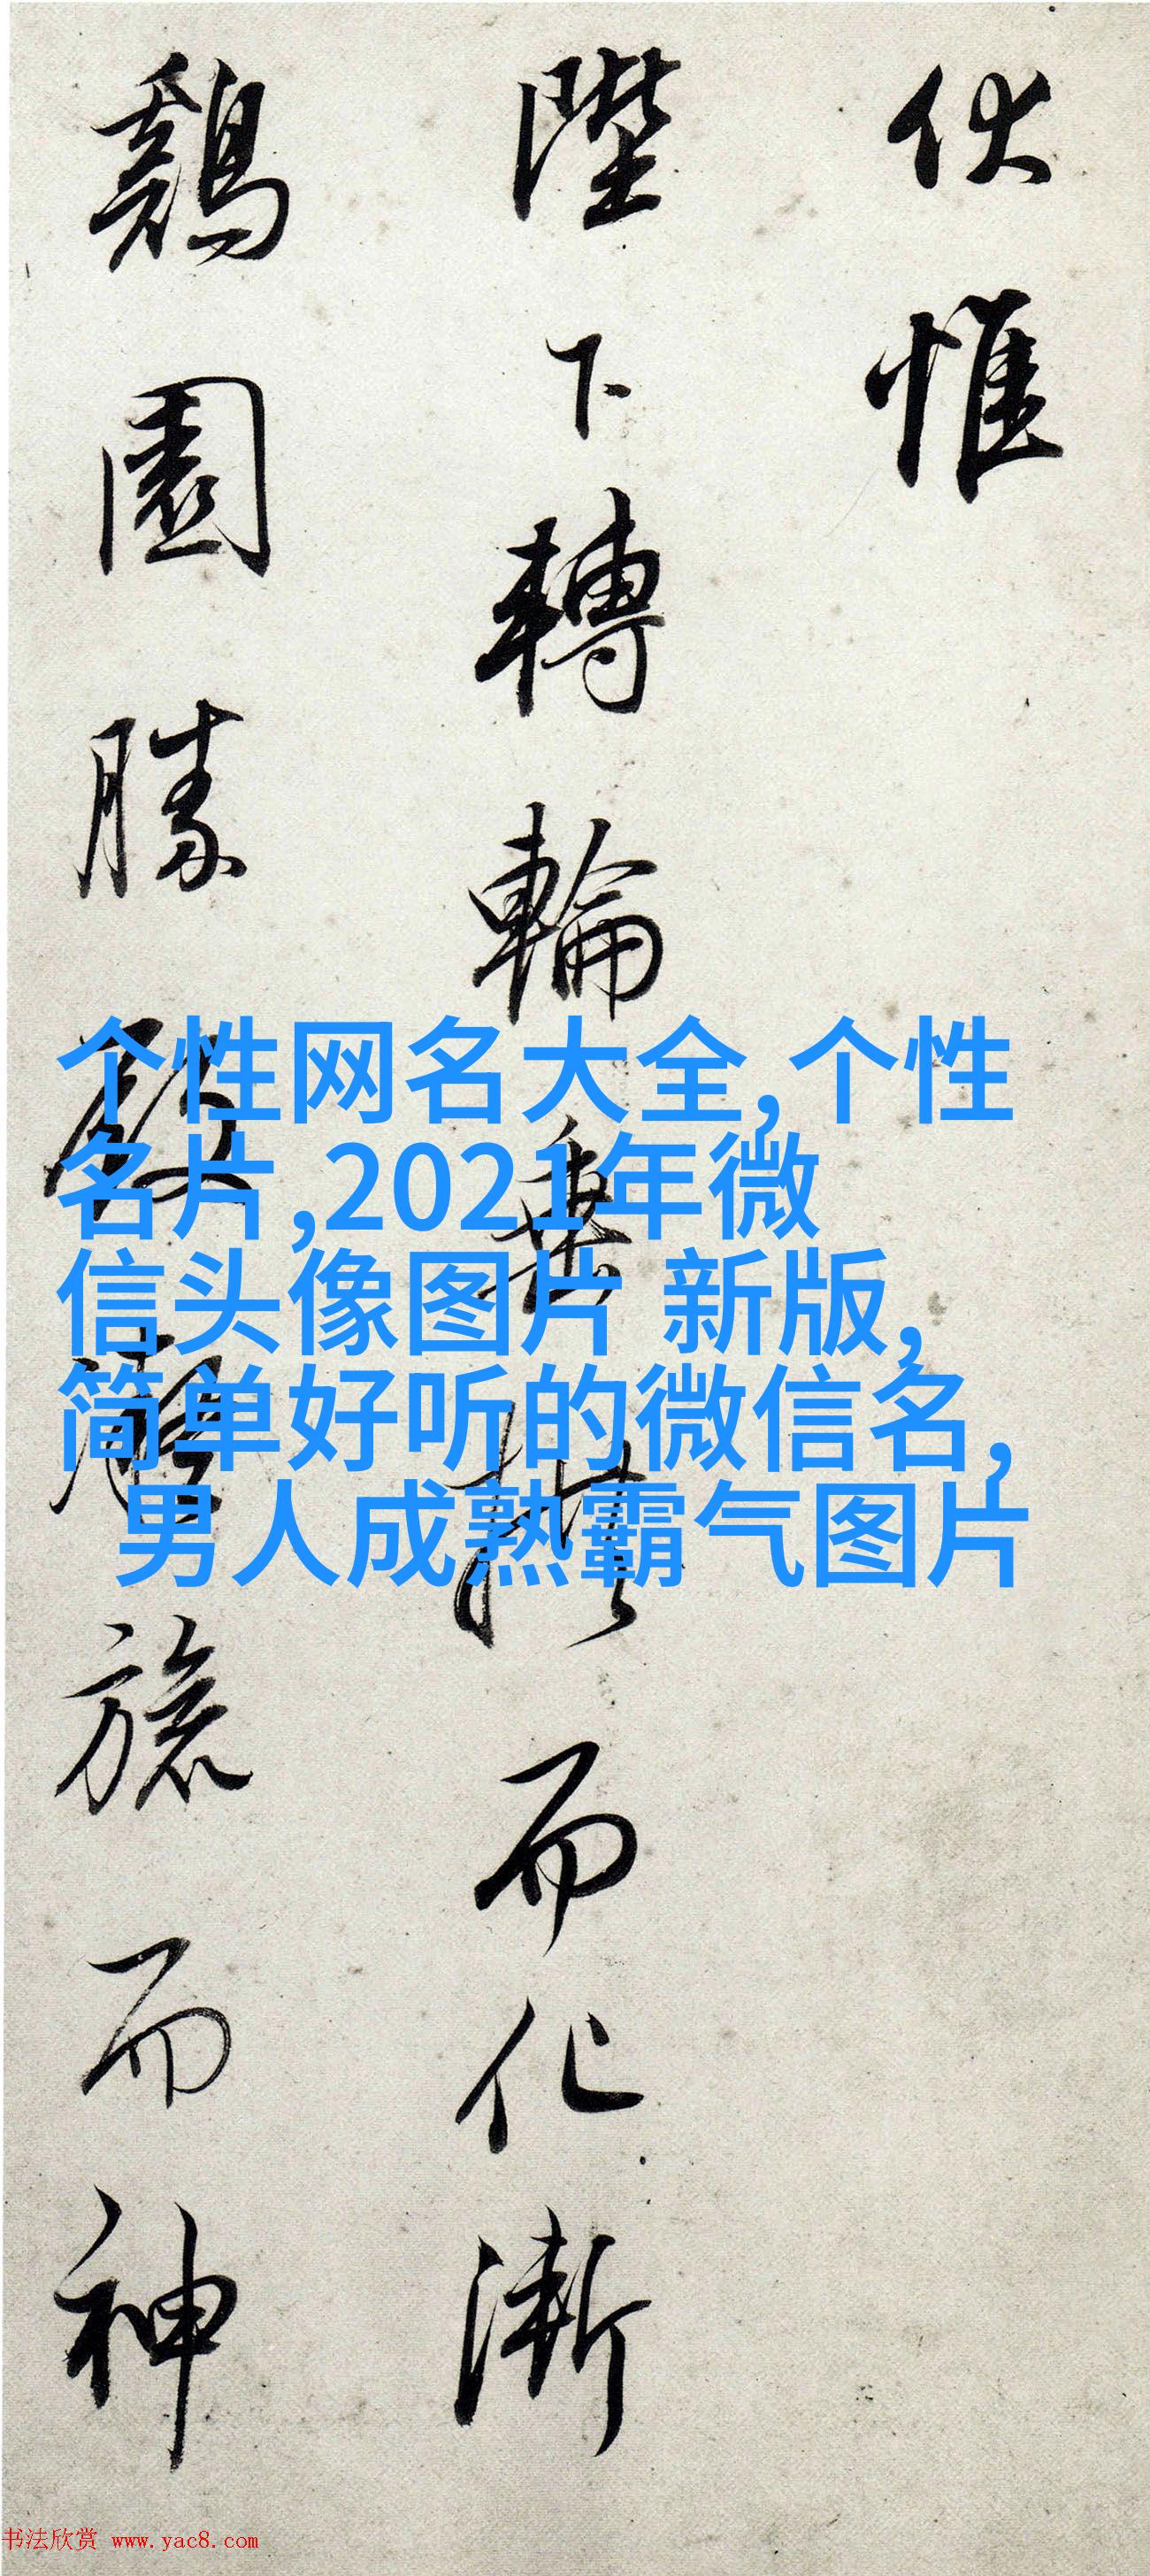 伏惟
陛下轉輪垂拱而化漸
鷄園勝殿凝旒而神
个性网名大全,个性
名片,2021年微
信头像图片 新版,
简单好听的微信名,
男人成熟霸气图片
书法欣赏 www.yac8.com